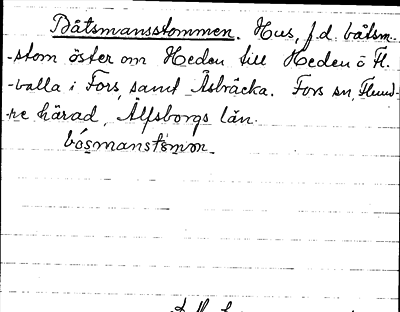 Båtsmansstommen. Hus, f.d. båtsm.-
-stom öster om Heden till Heden o Fl.
-valla i Fors, samt Åsbräcka. Fors sn, Flund-
-re härad, Älfsborgs län.
bósmanstömon